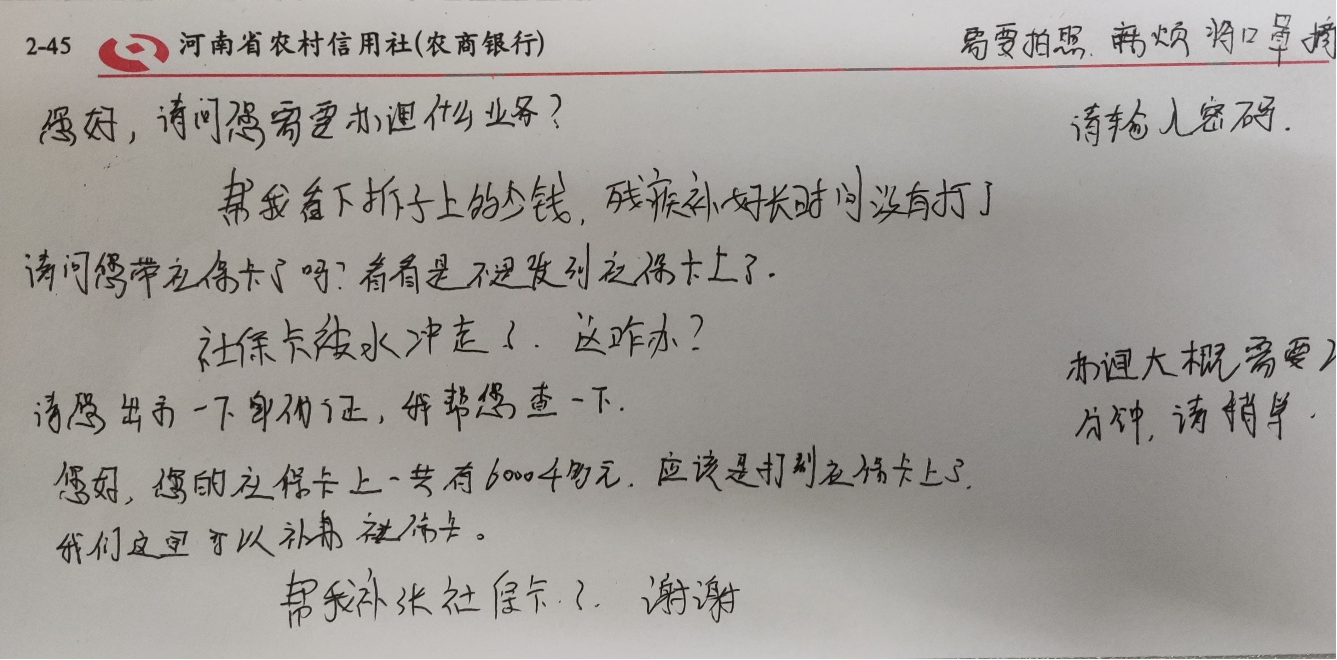 2-45 河南省农村信用社(农商银行)
需要拍照.麻烦将口罩摘
您好,请问您需要办理什么业务?
请输入密码.
帮我看下折子上的少钱,残疾补好长时间没有打了
请问您带社保卡了吗?看看是不是发到社保卡上了.
社保卡被水冲走了.这咋办?
请您出示一下身份证,我帮您查一下.
办理大概需要2
分钟,请稍等.
您好,您的社保卡上一共有6000多元.应该是打到社保卡上了.
我们这里可以补办社保卡。
帮我补张社保卡了.谢谢